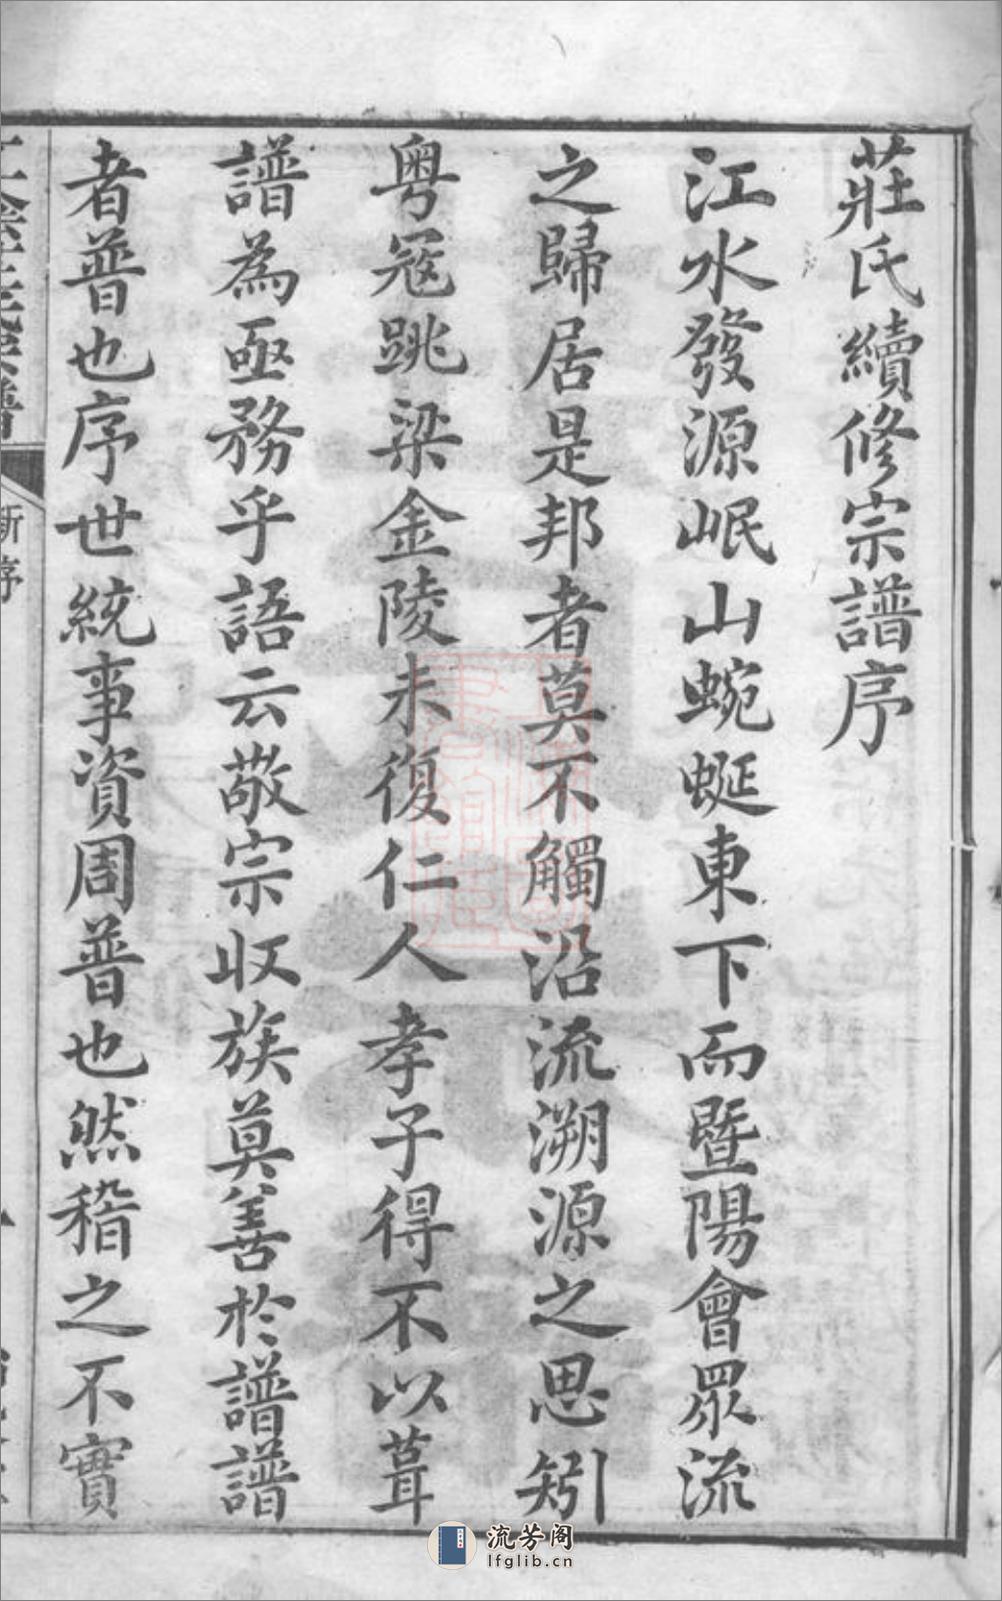 莊氏續修宗譜序
江水發源岷山蜿蜒東下而暨陽會眾流
之歸居是邦者莫不觸沿流溯源之思矧
粵冦跳梁金陵未復仁人孝子得不以葺
譜為亟務乎語云敬宗收族莫善於譜譜
者普也序世統事資周普也然稽之不實
新序
流芳阁
lfglib.cn